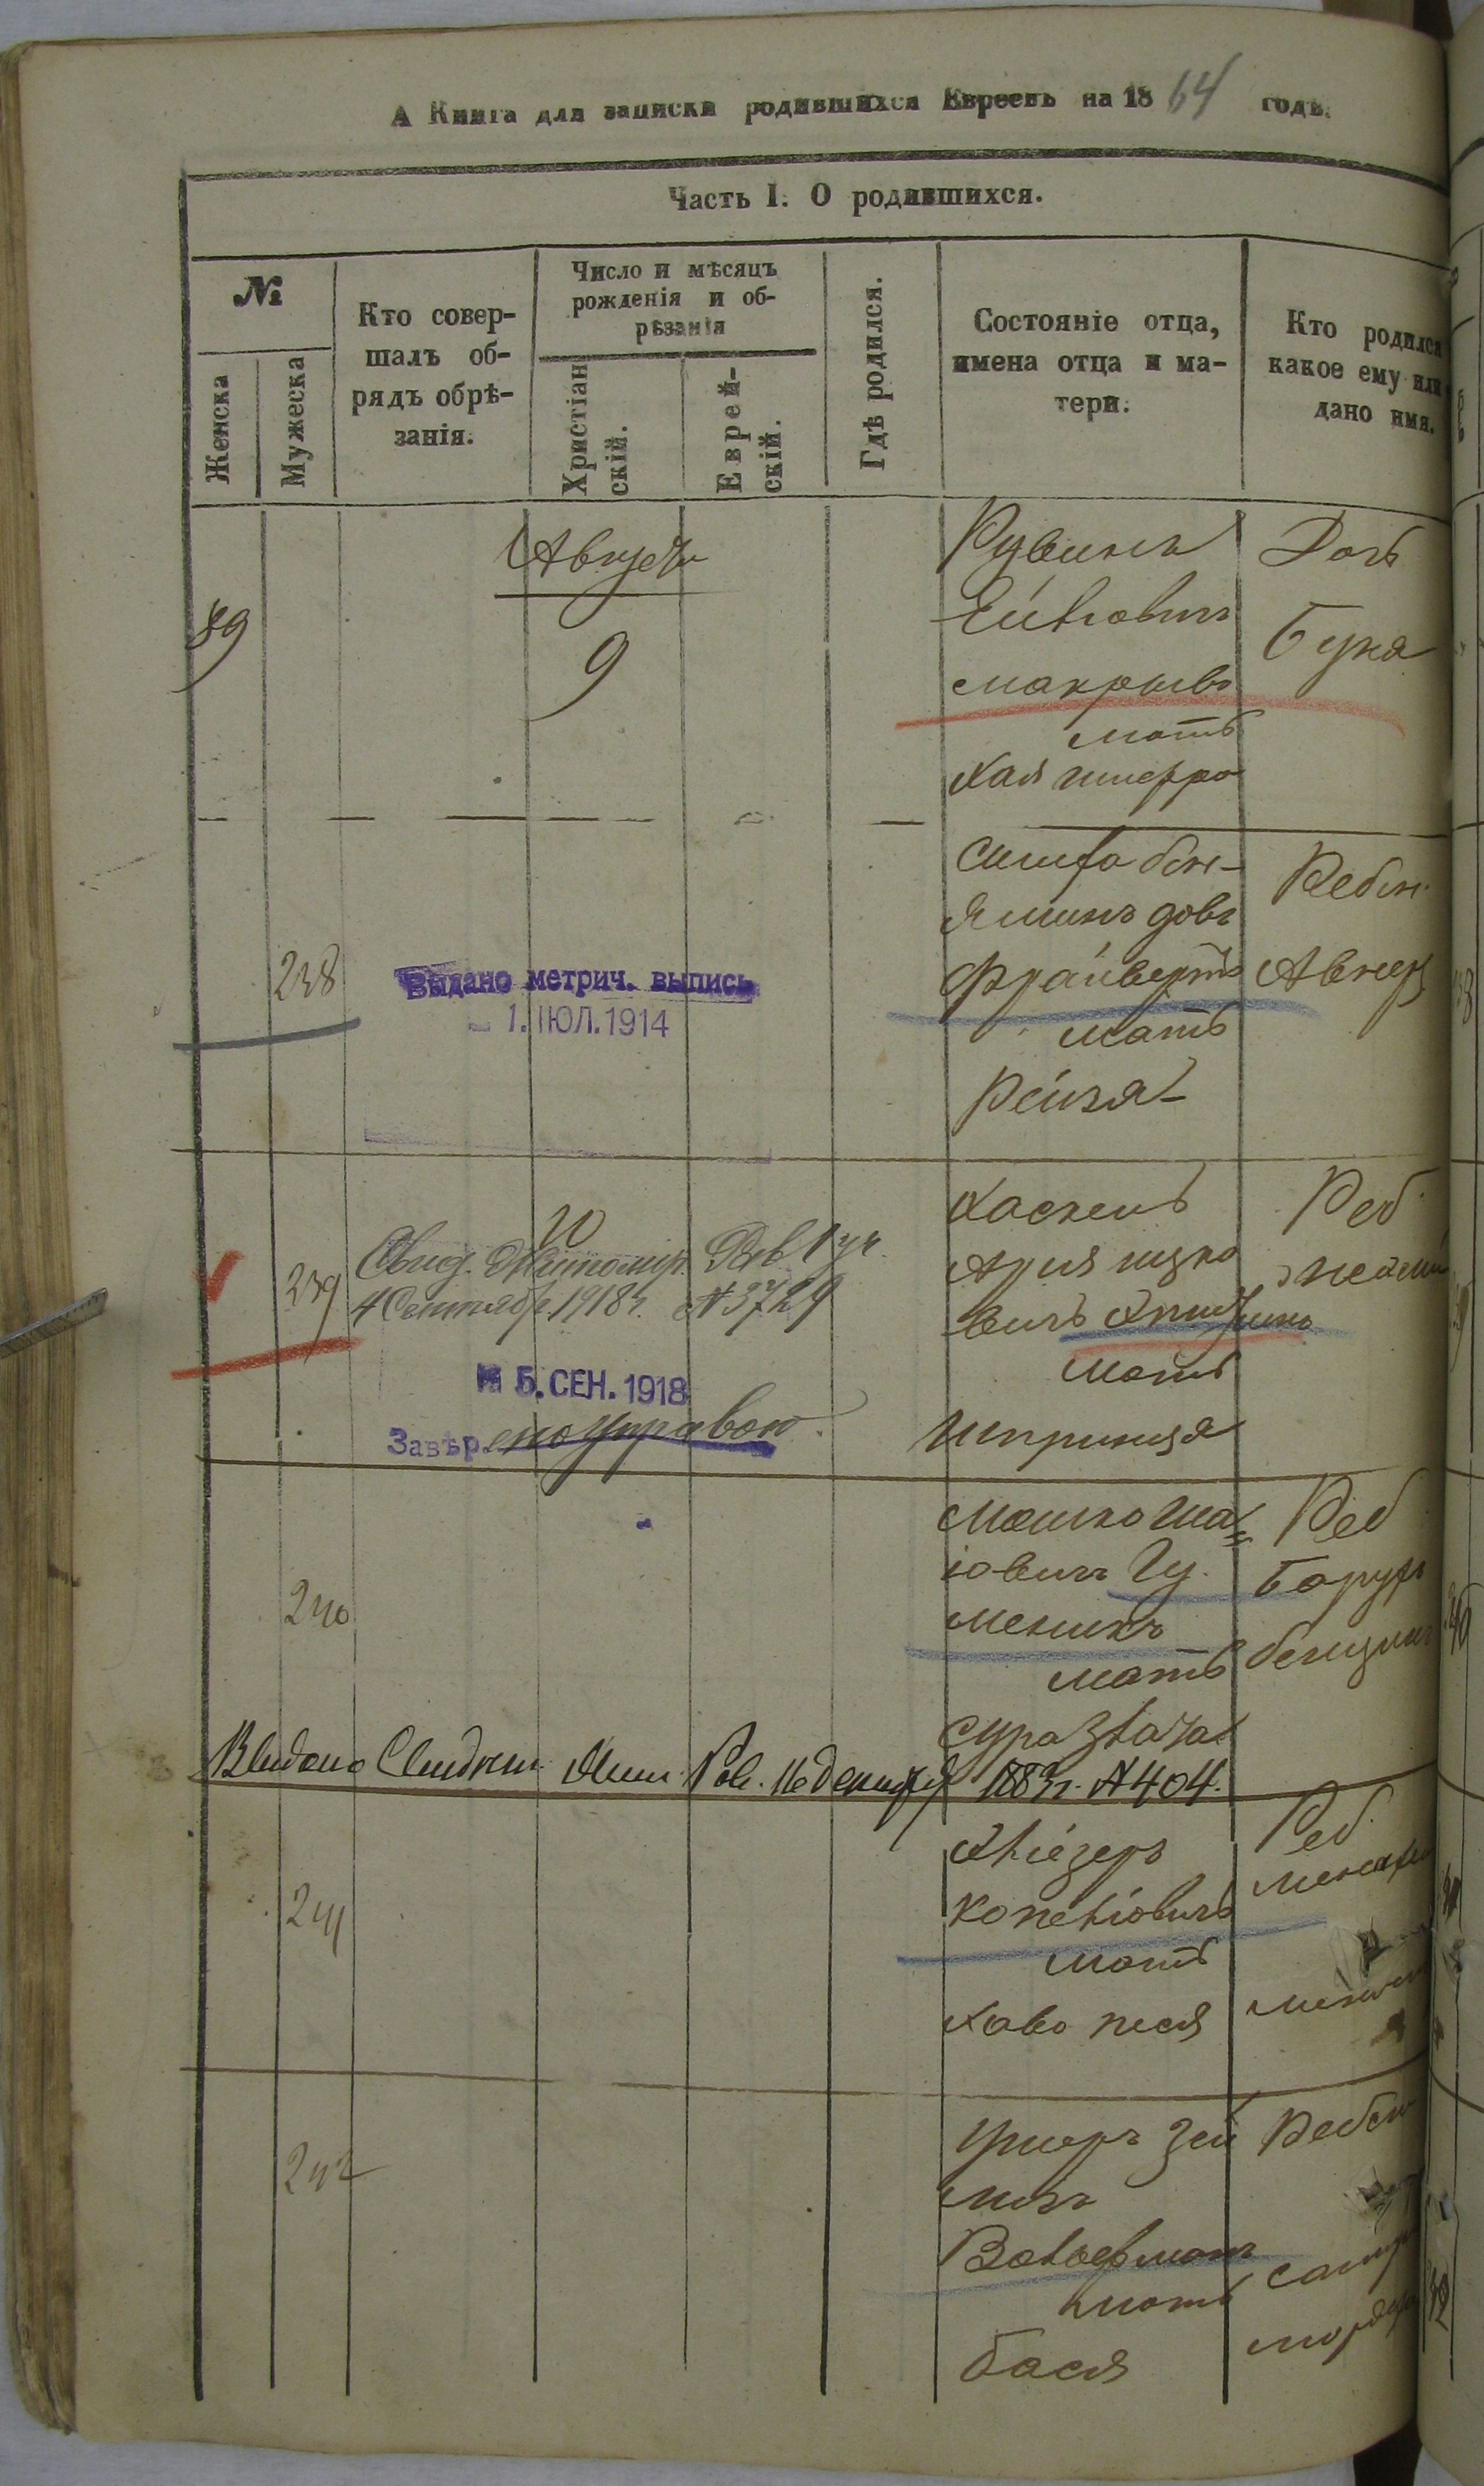 А Книга для записки родившихся Евреевъ на 1864 годъ.
Часть I. О родившихся.
№
Женска
Мужеска
Кто совер-
шалъ об-
рядъ обрѣ-
занія.
Число и мѣсяцъ
рожденія и об-
рѣзанія
Христіан
скій.
Еврей-
скій.
Гдѣ родился.
Состояніе отца,
имена отца и ма-
тери.
Кто родился
какое ему или
дано имя.
89
Августа
9
Рувинъ
мать
Хая
Дочь
Буня
238
Выдано метрич. выпись
1. ІЮЛ. 1914
Симха Бен-
яминъ довъ
Фрайвертъ
мать
Рейзя
Ребен.
Авнер
239
10
Свид. Житомир. Рав 1 уч.
4 Сентябр. 1918 г. № 3729
5. СЕН. 1918
Завѣр.ено управою
Хаскель
Ария ицко
вичъ
мать
Шпринца
Реб.
240
Мошко Ша=
іовичъ Гу.
меникъ
мать
Сура Злата
Реб
Борухъ
Бенцион
Выдано 16 декабря 1883 г. № 404.
241
Аліезеръ
Копеліовичъ
мать
Хава Песя
Реб.
242
Ушеръ Зей
Вольфманъ
мать
Бася
Ребен